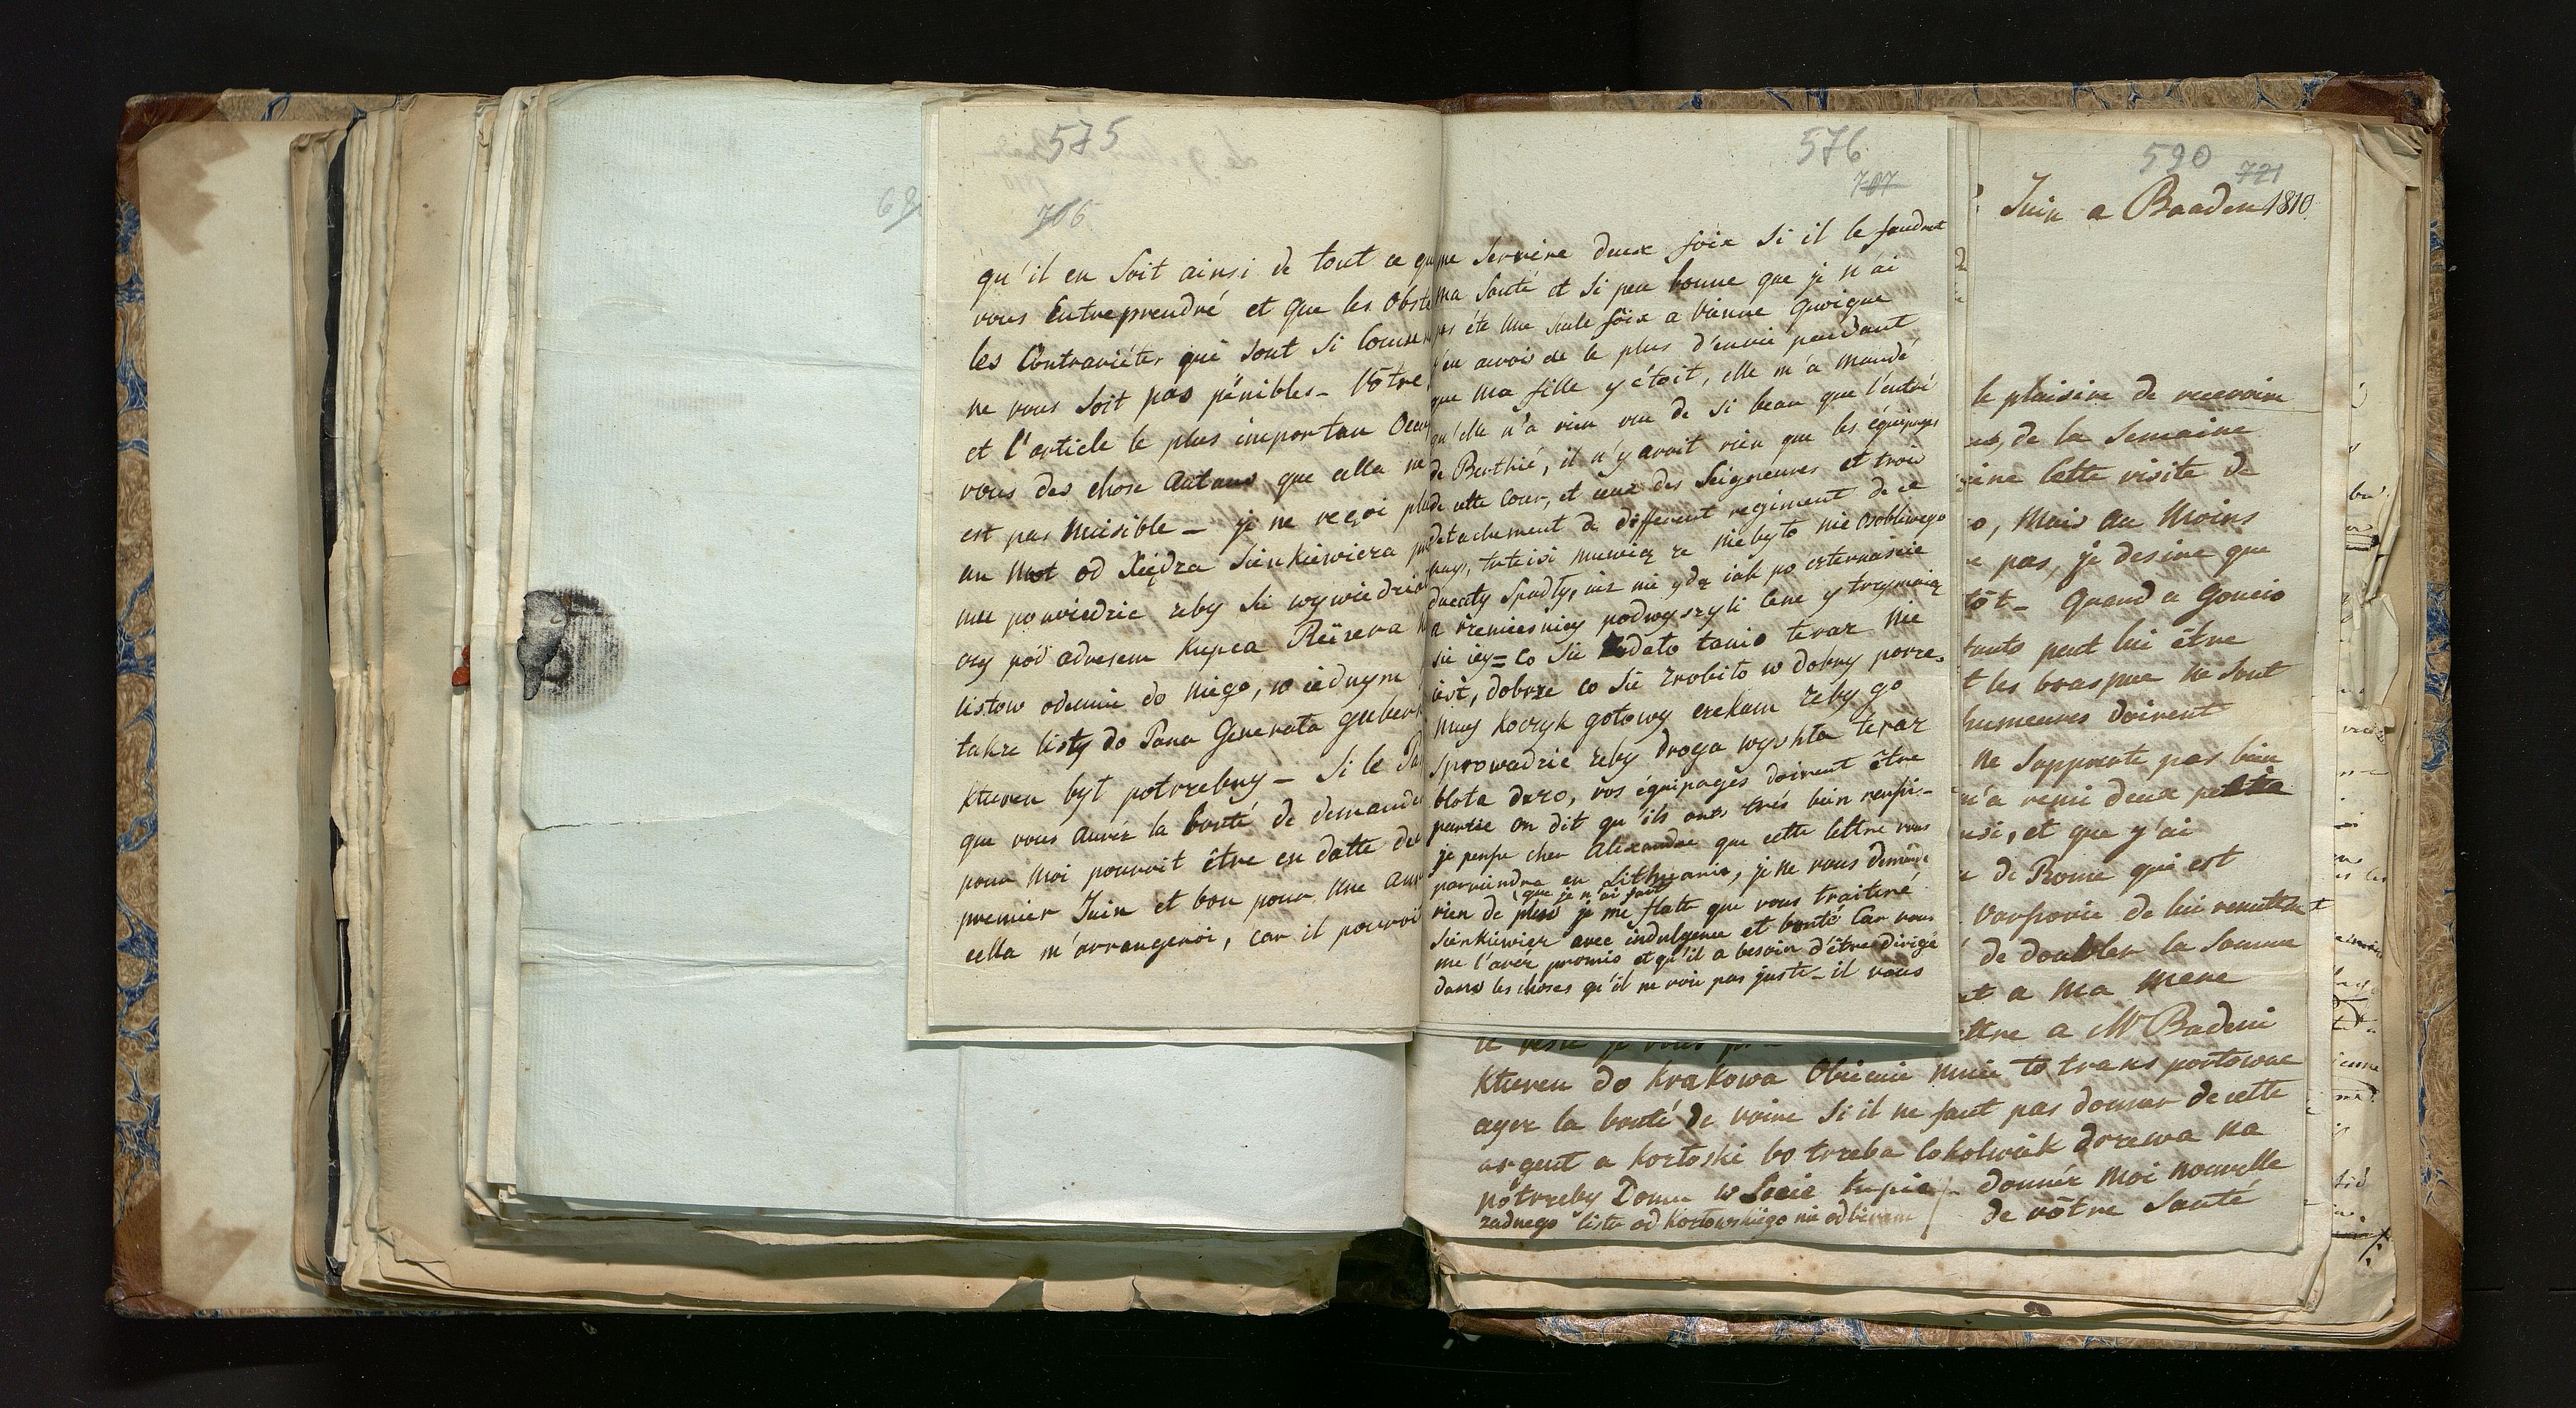 575
706
qu'il en Soit ainsi de tout ce qu
vous Entreprendré et que les Obste
les Contrariétes qui sont si Comune
ne vous Soit pas pénibles - Vôtre
et l'article le plus importan Occu
vous des chose autans que cella ne
est pas Nuisible - je ne reçoi plu
un Mot od Xiędza Sienkiewicza
mu powiedzie zeby Sie wywiedzia
czy pod adresem Kupca Reüzera
listow odemnie do niego, w iednym
takze listy do Pana Generała guber
kturen był potrzebny - Si le Pa
que vous aurez la bonté de demande
pour Moi pouroit être en datte du
premier Juin et bon pour Une ann
cella m'arrangeroi, car il pouroi
69
576
707
me Servire deux foix Si il le faudrat
Ma Santé et Si peu bonne que je n'ai
pas été Une Seule foix a Vienne quoique
j'en avois de le plus d'envie pendant
que Ma fille y étoit, elle m'a Mandé
qu'elle n'a rien vue de Si beau que l'entré
de Berthié, il n'y avoit rien que les équipages
de cette Cour, et ceux des Seigneures et trois
detachement de different regiment de ce
pays, tuteisi muwią ze niebyło nic osobliwego
Ducaty Spadły, iuz nie ydą iak po czternascie
a rzemiesnicy podwyszyli Cene y trzymaią
Sie iey = Co Sie Udało tanio teraz nie
iest, dobrze co Sie zrobiło w dobry porze.
Muy Koczyk gotowy czekam zeby go
Sprowadzic zeby droga wyschła teraz
błota duzo, vos équipages doivent être
partie on dit qu'ils ons trés bien reussi -
je pense cher Alexandre que cette lettre vous
parviendra en Lithuanie, je ne vous demande
(que je n'ai faut
rien de plus je me flatte que vous traiteré
Sienkiewicz avec indulgence et bonté Car vous
me l'avéz promis et qu'il a besoin d'être dirigé
dans les choses qu'il ne voie pas juste - il vous
590
721
Juin a Baaden 1810
le plaisire de recevoire
de la Semaine
cette visite de
Mais au Moins
pas, je desire que
tôt - Quand a Goucio
tants peut lui être
les brasque ne Sont
humeures doivent
ne Supporte pas bien
m'a remi deux petits
et que j'ai
de Rome qui est
Varsovie de lui remettent
de doubler la Somme
et a Ma Mere
ettre a Mr Badeni
le reste je vous
kturen do Krakowa Obiecuie mnie to transportowac
ayez la bonté de voire Si il ne faut pas donner de cette
argent a Kozłoski bo trzeba Cokolwiek drzewa na
potrzeby Domu w Lecie kupic / donnéz Moi nouvelle
zadnego listu od Kozłowskiego nie odbieram / de vôtre Santé